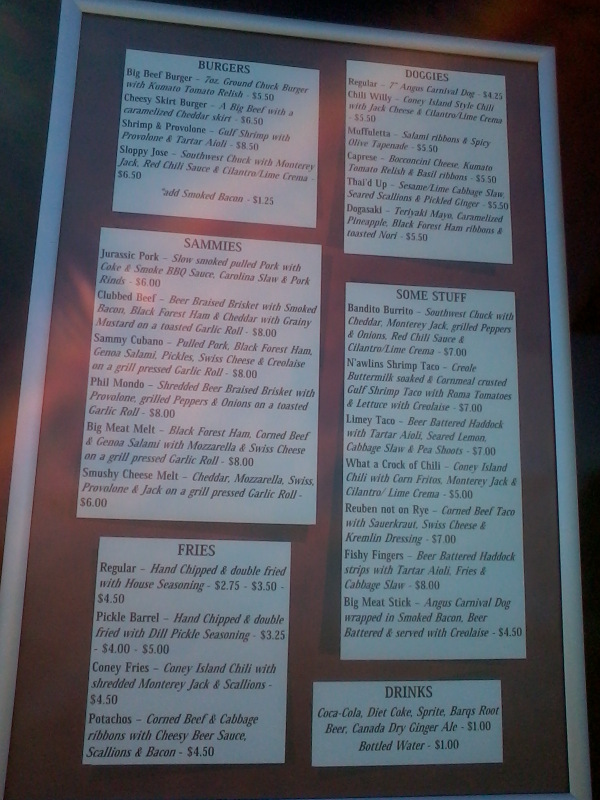 BURGERS
Big Beef Burger – 7oz. Ground Chuck Burger
with Kumato Tomato Relish - $5.50
Cheesy Skirt Burger – A Big Beef with a
caramelized Cheddar skirt - $6.50
Shrimp & Provolone – Gulf Shrimp with
Provolone & Tartar Aioli - $8.50
Sloppy Jose – Southwest Chuck with Monterey
Jack, Red Chili Sauce & Cilantro/Lime Crema -
$6.50
*add Smoked Bacon - $1.25
SAMMIES
Jurassic Pork – Slow smoked pulled Pork with
Coke & Smoke BBQ Sauce, Carolina Slaw & Pork
Rinds - $6.00
Clubbed Beef – Beer Braised Brisket with Smoked
Bacon, Black Forest Ham & Cheddar with Grainy
Mustard on a toasted Garlic Roll - $8.00
Sammy Cubano – Pulled Pork, Black Forest Ham,
Genoa Salami, Pickles, Swiss Cheese & Creolaise
on a grill pressed Garlic Roll - $8.00
Phil Mondo – Shredded Beer Braised Brisket with
Provolone, grilled Peppers & Onions on a toasted
Garlic Roll - $8.00
Big Meat Melt – Black Forest Ham, Corned Beef
& Genoa Salami with Mozzarella & Swiss Cheese
on a grill pressed Garlic Roll - $8.00
Smushy Cheese Melt – Cheddar, Mozzarella, Swiss,
Provolone & Jack on a grill pressed Garlic Roll -
$6.00
FRIES
Regular – Hand Chipped & double fried
with House Seasoning - $2.75 - $3.50 -
$4.50
Pickle Barrel – Hand Chipped & double
fried with Dill Pickle Seasoning - $3.25
- $4.00 - $5.00
Coney Fries – Coney Island Chili with
shredded Monterey Jack & Scallions -
$4.50
Potachos – Corned Beef & Cabbage
ribbons with Cheesy Beer Sauce,
Scallions & Bacon - $4.50
DOGGIES
Regular – 7" Angus Carnival Dog - $4.25
Chili Willy – Coney Island Style Chili
with Jack Cheese & Cilantro/Lime Crema
- $5.50
Muffuletta – Salami ribbons & Spicy
Olive Tapenade - $5.50
Caprese – Bocconcini Cheese, Kumato
Tomato Relish & Basil ribbons - $5.50
Thai'd Up – Sesame/Lime Cabbage Slaw,
Seared Scallions & Pickled Ginger - $5.50
Dogasaki – Teriyaki Mayo, Caramelized
Pineapple, Black Forest Ham ribbons &
toasted Nori - $5.50
SOME STUFF
Bandito Burrito – Southwest Chuck with
Cheddar, Monterey Jack, grilled Peppers
& Onions, Red Chili Sauce &
Cilantro/Lime Crema - $7.00
N'awlins Shrimp Taco – Creole
Buttermilk soaked & Cornmeal crusted
Gulf Shrimp Taco with Roma Tomatoes
& Lettuce with Creolaise - $7.00
Limey Taco – Beer Battered Haddock
with Tartar Aioli, Seared Lemon,
Cabbage Slaw & Pea Shoots - $7.00
What a Crock of Chili – Coney Island
Chili with Corn Fritos, Monterey Jack &
Cilantro/ Lime Crema - $5.00
Reuben not on Rye – Corned Beef Taco
with Sauerkraut, Swiss Cheese &
Kremlin Dressing - $7.00
Fishy Fingers – Beer Battered Haddock
strips with Tartar Aioli, Fries &
Cabbage Slaw - $8.00
Big Meat Stick – Angus Carnival Dog
wrapped in Smoked Bacon, Beer
Battered & served with Creolaise - $4.50
DRINKS
Coca-Cola, Diet Coke, Sprite, Barqs Root
Beer, Canada Dry Ginger Ale - $1.00
Bottled Water - $1.00